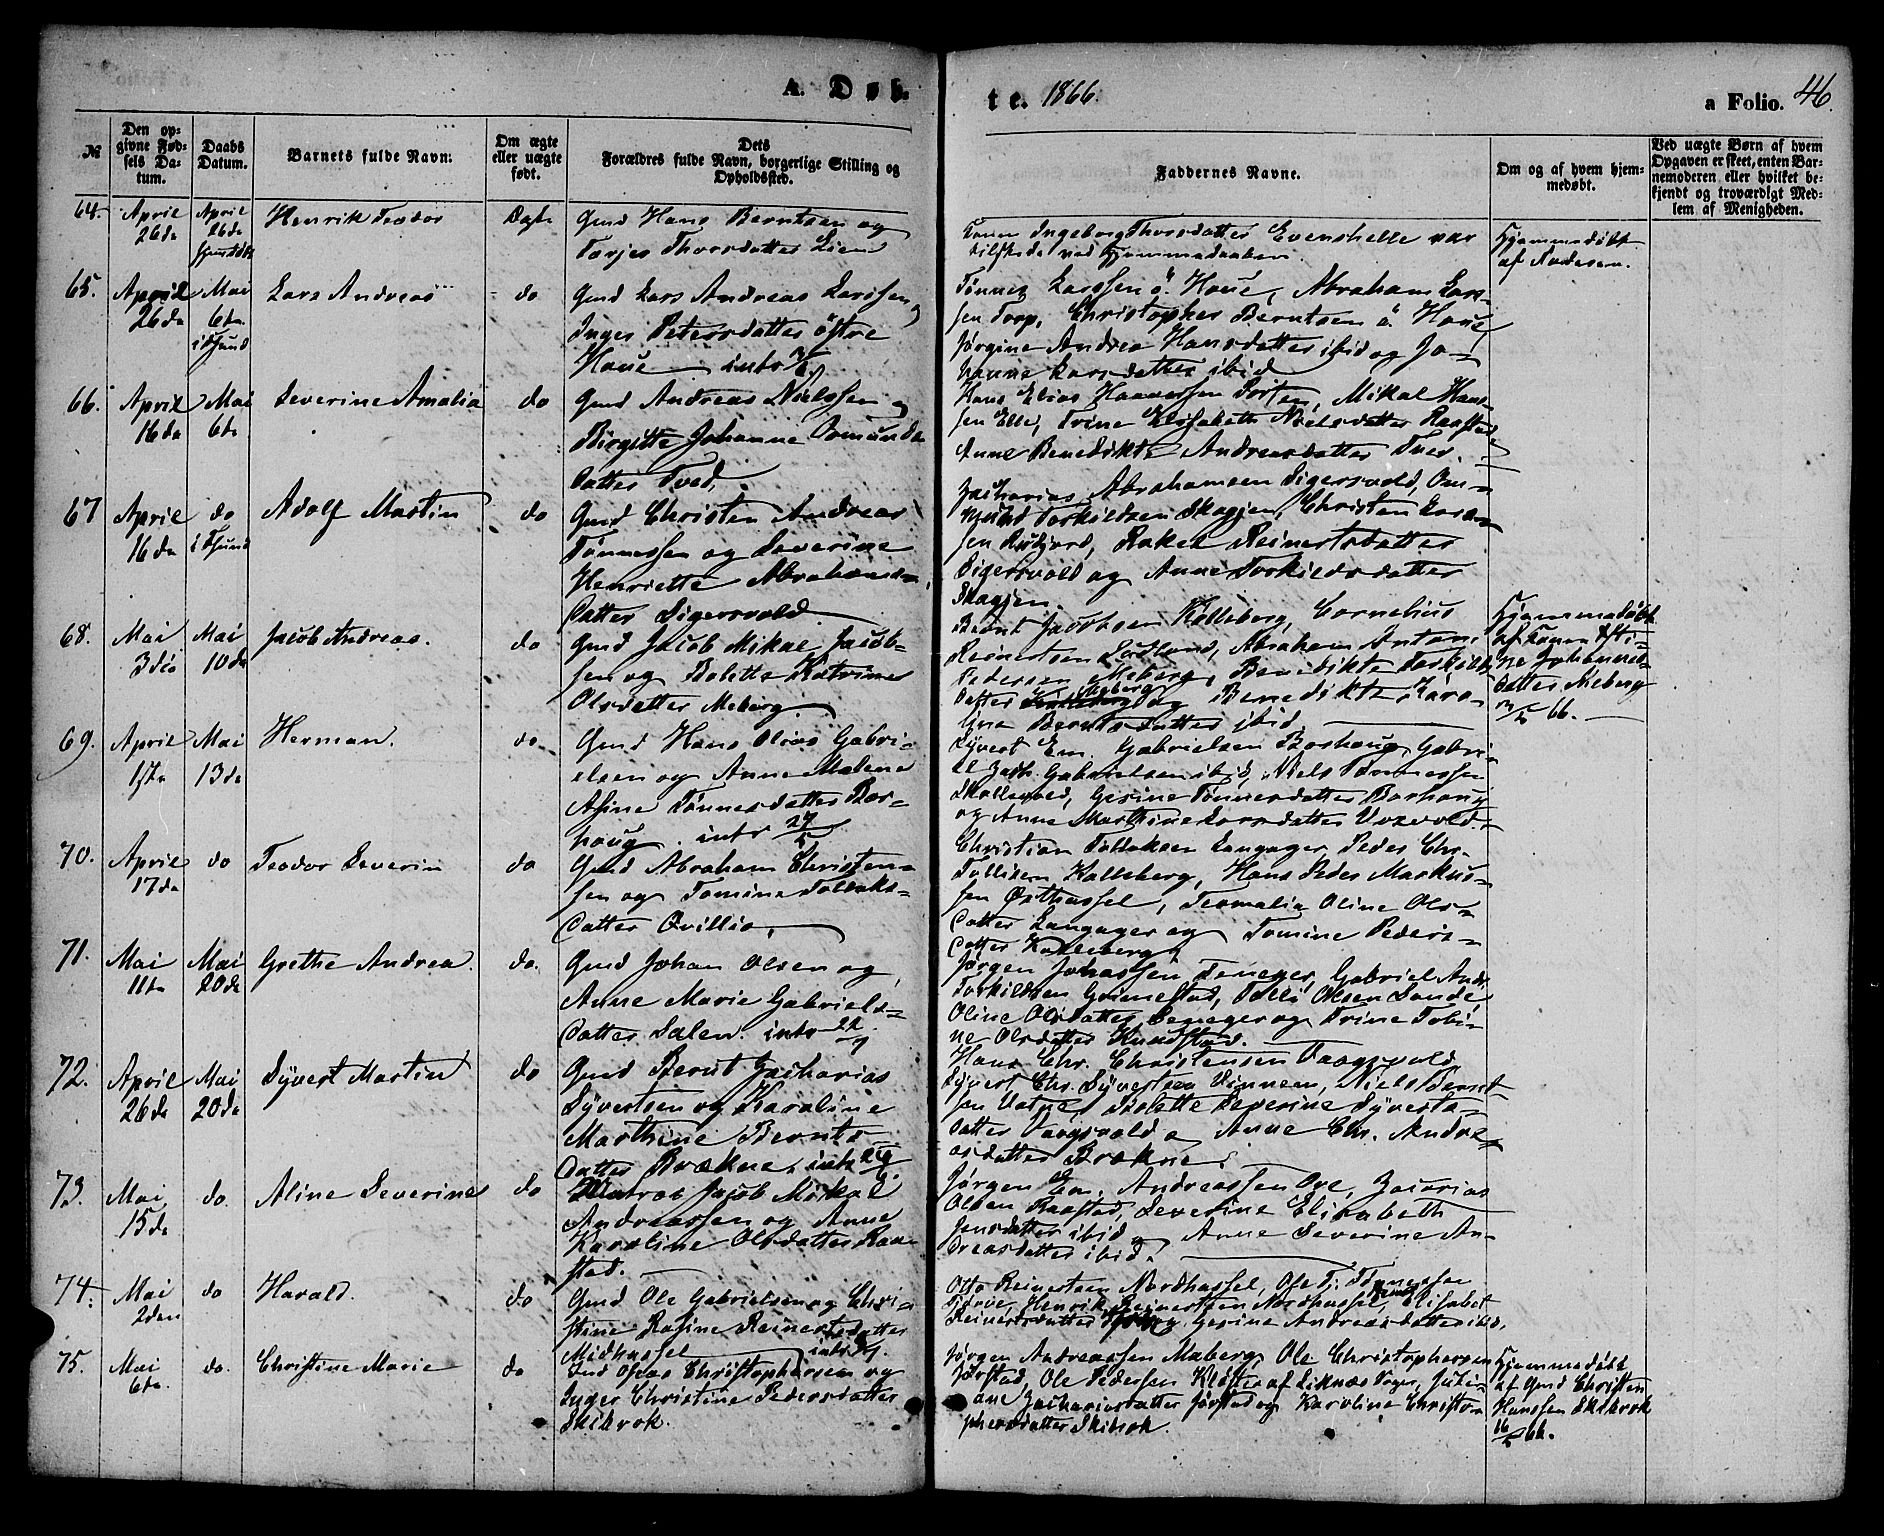 A. Døb-
№
Den op-
givne Fød-
sels Da-
tum.
Daabs
Datum.
Barnets fulde Navn.
Om ægte
eller uægte
født.
Dets
Forældres fulde Navn, borgerlige Stilling og
Opholdssted.
64.
April
26de
April
26de
Henrik Teodor
Ægte
Gmd Hans Berntsen og
Torjer Thorsdatter Lien
65.
April
26de
Mai
6te
Lars Andreas
do
Gmd Lars Andreas Larssen
Inger Petersdatter østre
Haue intr
66.
April
16de
Mai
6te
Severine Amalia
do
Gmd Andreas Nielssen og
Birgitte Johanne Omunds
datter Tved.
67
April
16de
do
Adolf Martin
do
Gmd Christen Andreas
Tønnessen og Severine
Henriette Abrahams-
datter Sigersvold
68.
Mai
3die
Mai
10de
Jacob Andreas.
do
Gmd Jacob Mikal Jacob-
sen og Bolette Katrine
Olsdatter Meberg.
69.
April
17de
Mai
13de
Herman.
do
Gmd Hans Elias Gabri-
elsen og Anne Malene
Asine Tønnesdatter Bor-
haug. intr 27/5
70.
April
17de
do
Teodor Severin
do
Gmd Abraham Christen-
sen og Tomine Tollaks-
datter Qvillio.
71.
Mai
11te
Mai
20de
Grethe Andrea.
do.
Gmd Johan Olsen og
Anne Marie Gabriels-
datter Dalen. intr
72.
April
26de
Mai
20de
Syvert Martin
do
Gmd Bernt Zacharias
Syvertsen og Karoline
Marthine Bernts-
datter Brækne, intr
73.
Mai
15de
do.
Aline Severine
do
Matros Jacob Mikal
Andreassen og Anne
Karoline Olsdatter Raa-
stad.
74.
Mai
2den
do
Harald.
do
Gmd Ole Gabrielsen og Chri-
stine Rasine Reinertsdatter
Midhassel intr
75.
Mai
6te.
do.
Christine Marie
do
Ind Olaus Christophersen og
Inger Christine Pedersdatter
Skibrok.
te. 1866.
a Folio. 46.
Faddernes Navne.
Om og af hvem hjem-
medøbt.
Ved uægte Børn af hvem
Opgaven er skeet, enten Bar-
nemoderen eller hvilket be-
kjendt og troværdigt Med-
lem af Menigheden.
Konen Ingeborg Thorsdatter Evenshelle var
tilstede ved Hjemmedaaben.
Hjemmedøbt
af Faderen.
Tønnes Larssen ø. Haue, Abraham Lars-
sen Torp, Christopher Berntsen ø. Haue
Jørgine Andrea Hansdatter ibid og Jo-
hanne Larsdatter ibid
Hans Elias Haaversen Jorsten, Mikal Han-
sen Elle, Trine Elisabeth Nielsdatter Raastad
Anne Benedikte Andreasdatter Tved.
Zacharias Abrahamsen Sigersvold, Om-
mund Torkildsen Skagjen, Christen Lars-
sen, Rakel Reinertsdatter
Sigersvold og Anne Torkildsdatter
Skagjen
Bernt Jacobsen Kalleberg, Cornelius
Reinertsen, Abraham Anton
Pedersen Meberg, Benedikte Torkilds
datter Meberg og Benedikte Karo-
line Berntsdatter ibid
Hjemmedøbt
af Konen
Johannes-
datter Meberg
66.
Syvert Em. Gabrielsen Borhaug, Gabri-
el Zach. Gabrielsen ibid, Niels Tønnessen
Skollevold, Gesine Tønnesdatter Borhaug
og Anne Marthine Larsdatter
Christian Tollaksen Langager, Peder Chr.
Tollisen Kalleberg, Hans Peder Markus-
sen Østhassel, Teomalia Oline Ols-
datter Langager og Tomine Peders-
datter Kalleberg
Jørgen Johassen, Gabriel Andr.
Torkildsen Grimestad, Tolli Olsen Sande,
Oline Olsdatter og Trine Tobi-
ne Olsdatter
Hans Chr. Christensen Vaagsvold
Syvert Chr. Syvertsen Vinnem, Niels Bernt-
sen Vatne, Bolette Severine Syverts-
datter Vaagsvold og Anne Chr. Andre-
asdatter Brækne.
Jørgen Em. Andreassen Ore, Zacarias
Olsen Raastad, Severine Elisabeth
Jensdatter ibid og Anne Severine An-
dreasdatter ibid.
Otto Reinertsen Nordhassel, Ole T. Tønnessen
Tjørve, Henrik Reinertsen Nordhassel, Elisabet
Reinertsdatter og Gesine Andreasdatter ibid.
Jørgen Andreassen Meberg, Ole Christophersen
Jørstad, Ole Pedersen Kloster af Liknæs Sogn, Juli-
ane Zachariasdatter Jørstad og Karoline Christo-
phersdatter Skibrok.
Hjemmedøbt
af Gmd Christen
Hanssen Skibrok
16/5 66.